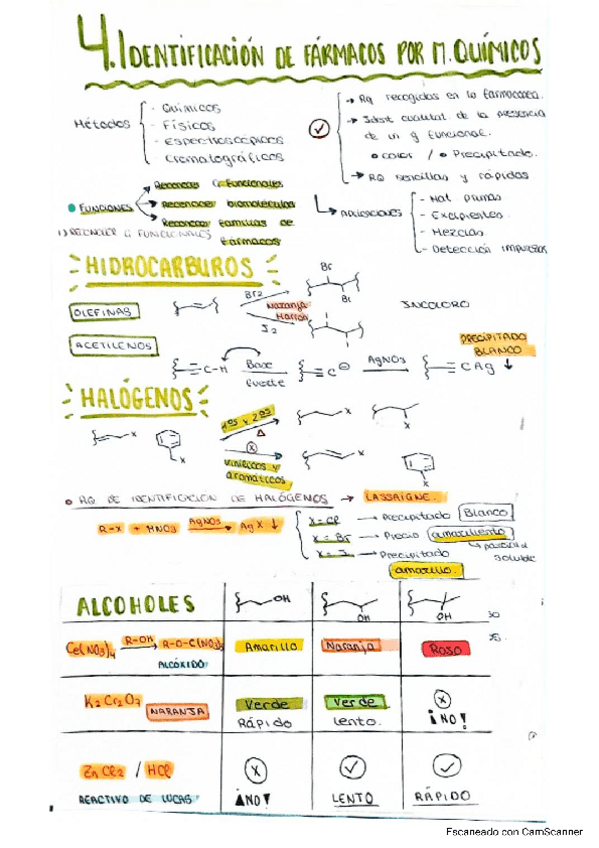 4. IDENTIFICACIÓN DE FÁRMACOS POR M. QUÍMICOS
Métodos
- Químicos
- Físicos
- Espectroscópicos
- Cromatográficos
→ RQ recogidas en la farmacopea.
→ Ident cualitat. de la presencia
de un g funcional.
• color / • Precipitado.
→ RQ sencillas y rápidas
→ APLICACIONES
- Mat. primas
- Excipientes
- Mezclas
- Detección impurezas
• FUNCIONES
Reconocer G. Funcionales
Reconocer biomoléculas
Reconocer familias de
Fármacos
1) RECONOCER G FUNCIONALES
HIDROCARBUROS
OLEFINAS
Br2
Naranja
Marrón
I2
Br
Br
INCOLORO
ACETILENOS
C-H
Base
fuerte
C⊖
AgNO3
CAg ↓
PRECIPITADO
BLANCO
HALÓGENOS
X
X
1os y 2os
Δ
X
X
vinílicos y
aromáticos
X
X
• RQ DE IDENTIFICACION DE HALÓGENOS → LASSAIGNE.
R-X + HNO3 AgNO3 → AgX ↓
X = Cl → Precipitado Blanco
X = Br → Precip amarillento
soluble
X = I → Precipitado
amarillo.
ALCOHOLES
OH
OH
OH
Ce(NO3)4 R-OH → R-O-C(NO3)3
ALCÓXIDO
Amarillo
Naranja
Rojo
K2Cr2O7
NARANJA
Verde
Rápido
Verde
lento.
¡NO!
ZnCl2 / HCl
REACTIVO DE LUCAS
¡NO!
LENTO
RÁPIDO
Escaneado con CamScanner